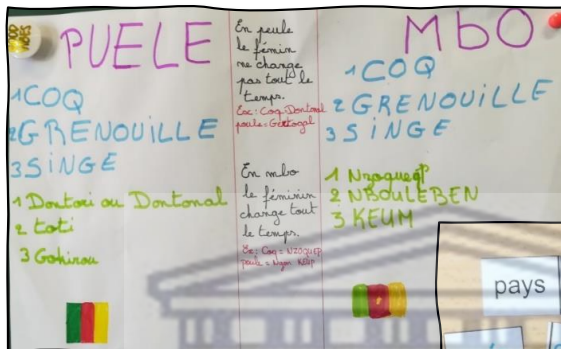 PUELE
1COQ
2GRENOUILLE
3SiNGE
1 Dontori ou Dontonal
2 toti
3 Gohirou
En peule
le fémin
ne change
pas tout le
temps.
Ex: Coq-Dontonal
poule=Gertogal
En mbo
le féminin
change tout
le temps.
Ex: Coq=NZOGUEP
poule=Ngon
MbO
1COQ
2 GRENOUiLLE
3 SiNGE
1 Nzogueqp
2 NBOULEBEN
3 KEUM
pays